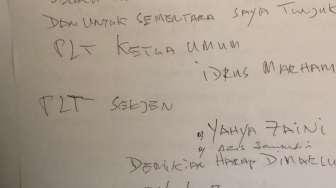 DAN UNTUK SEMENTARA SAYA TUNJUK
PLT KETUA UMUM
IDRUS MARHAM
PLT SEKJEN
YAHYA ZAINI
DEMIKIAN HARAP DIMAKLU